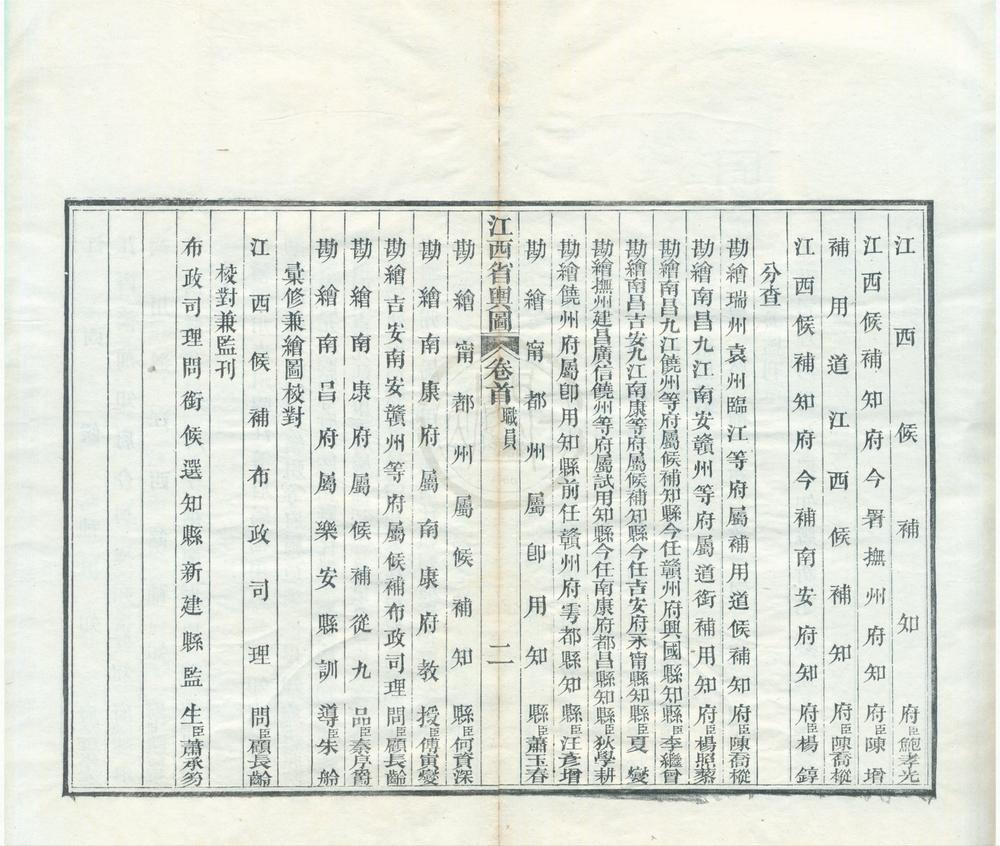 江西候補知府臣鮑孝光
江西候補知府今署撫州府知府臣陳增
補用道江西候補知府臣陳喬樅
江西候補知府今補南安府知府臣楊錞
分查
勘繪瑞州袁州臨江等府屬補用道候補知府臣陳喬樅
勘繪南昌九江南安贛州等府屬道銜補用知府臣楊照藜
勘繪南昌九江饒州等府屬候補知縣今任贛州府興國縣知縣臣李繼曾
勘繪南昌吉安九江南康等府屬候補知縣今任吉安府永甯縣知縣臣夏燮
勘繪撫州建昌廣信饒州等府屬試用知縣今任南康府都昌縣知縣臣狄學耕
勘繪饒州府屬卽用知縣前任贛州府雩都縣知縣臣汪彥增
勘繪甯都州屬卽用知縣臣蕭玉春
江西省輿圖 卷首 職員 二
勘繪甯都州屬候補知縣臣何資深
勘繪南康府屬南康府教授臣傅寅燮
勘繪吉安南安贛州等府屬候補布政司理問臣顧長齡
勘繪南康府屬候補從九品臣秦序爵
勘繪南昌府屬樂安縣訓導臣朱舲
彙修兼繪圖校對
江西候補布政司理問臣顧長齡
校對兼監刊
布政司理問銜候選知縣新建縣監生臣蕭承豹